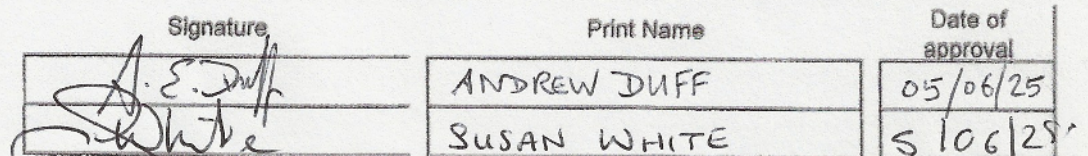 Signature Print Name Date of
approval
A. E. Duff ANDREW DUFF 05/06/25
S. White SUSAN WHITE 5/06/25